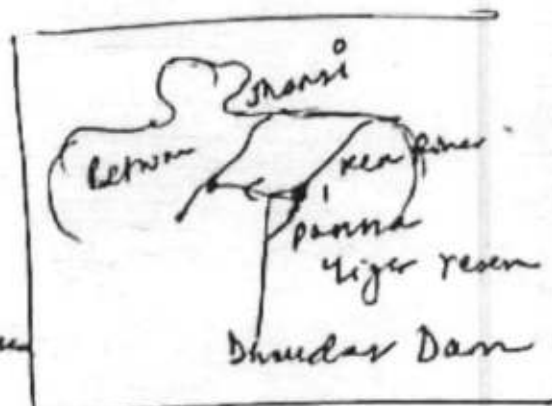 Jhansi
Betwa
Ken River
Panna
Tiger reser
Dhaudar Dam